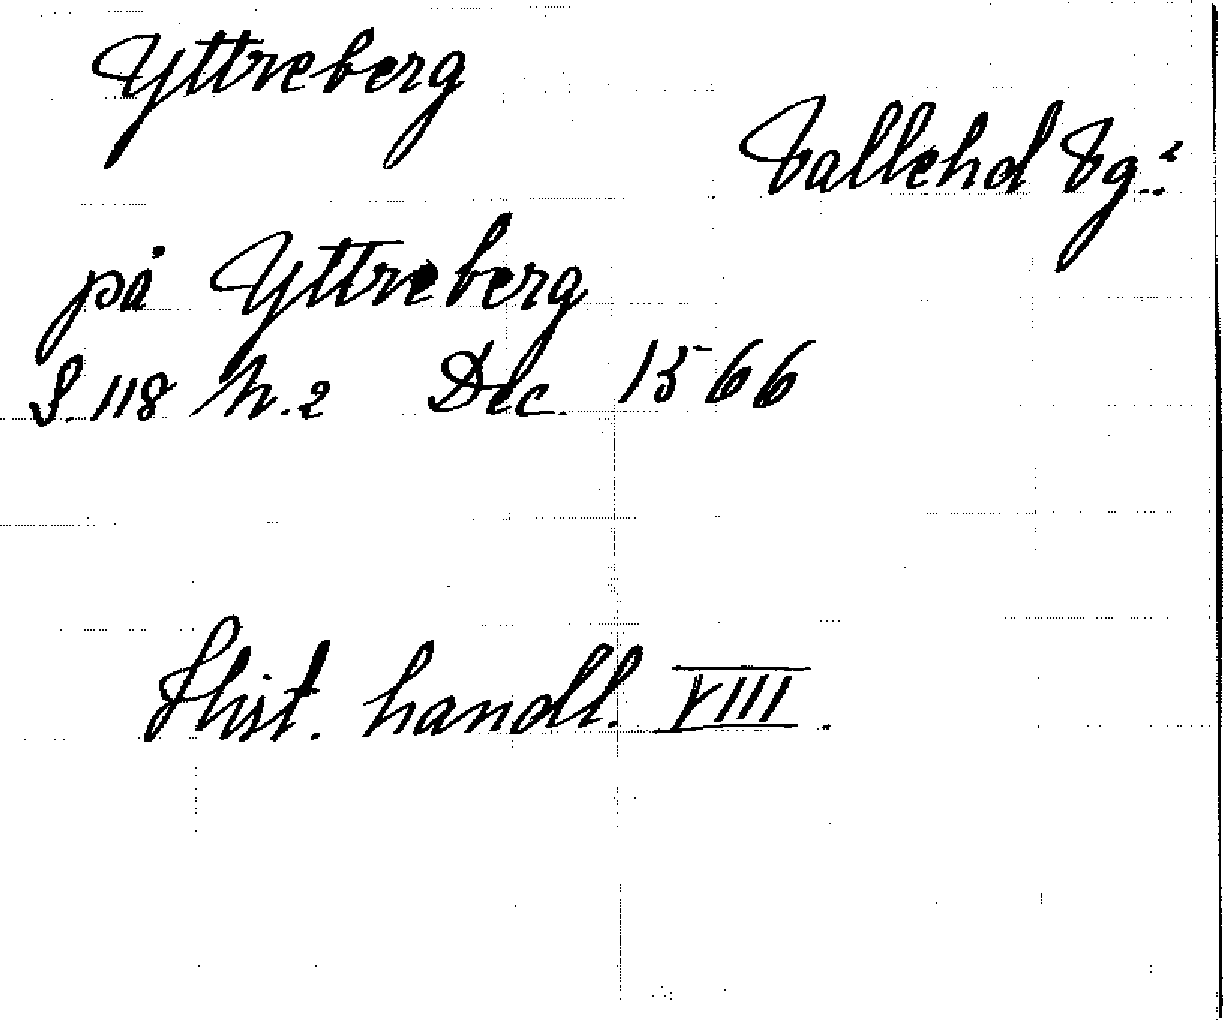 Yttreberg
Vallehd Vg:
på Yttreberg
S. 118 N. 2 Dec. 1566
Hist. handl. VIII.